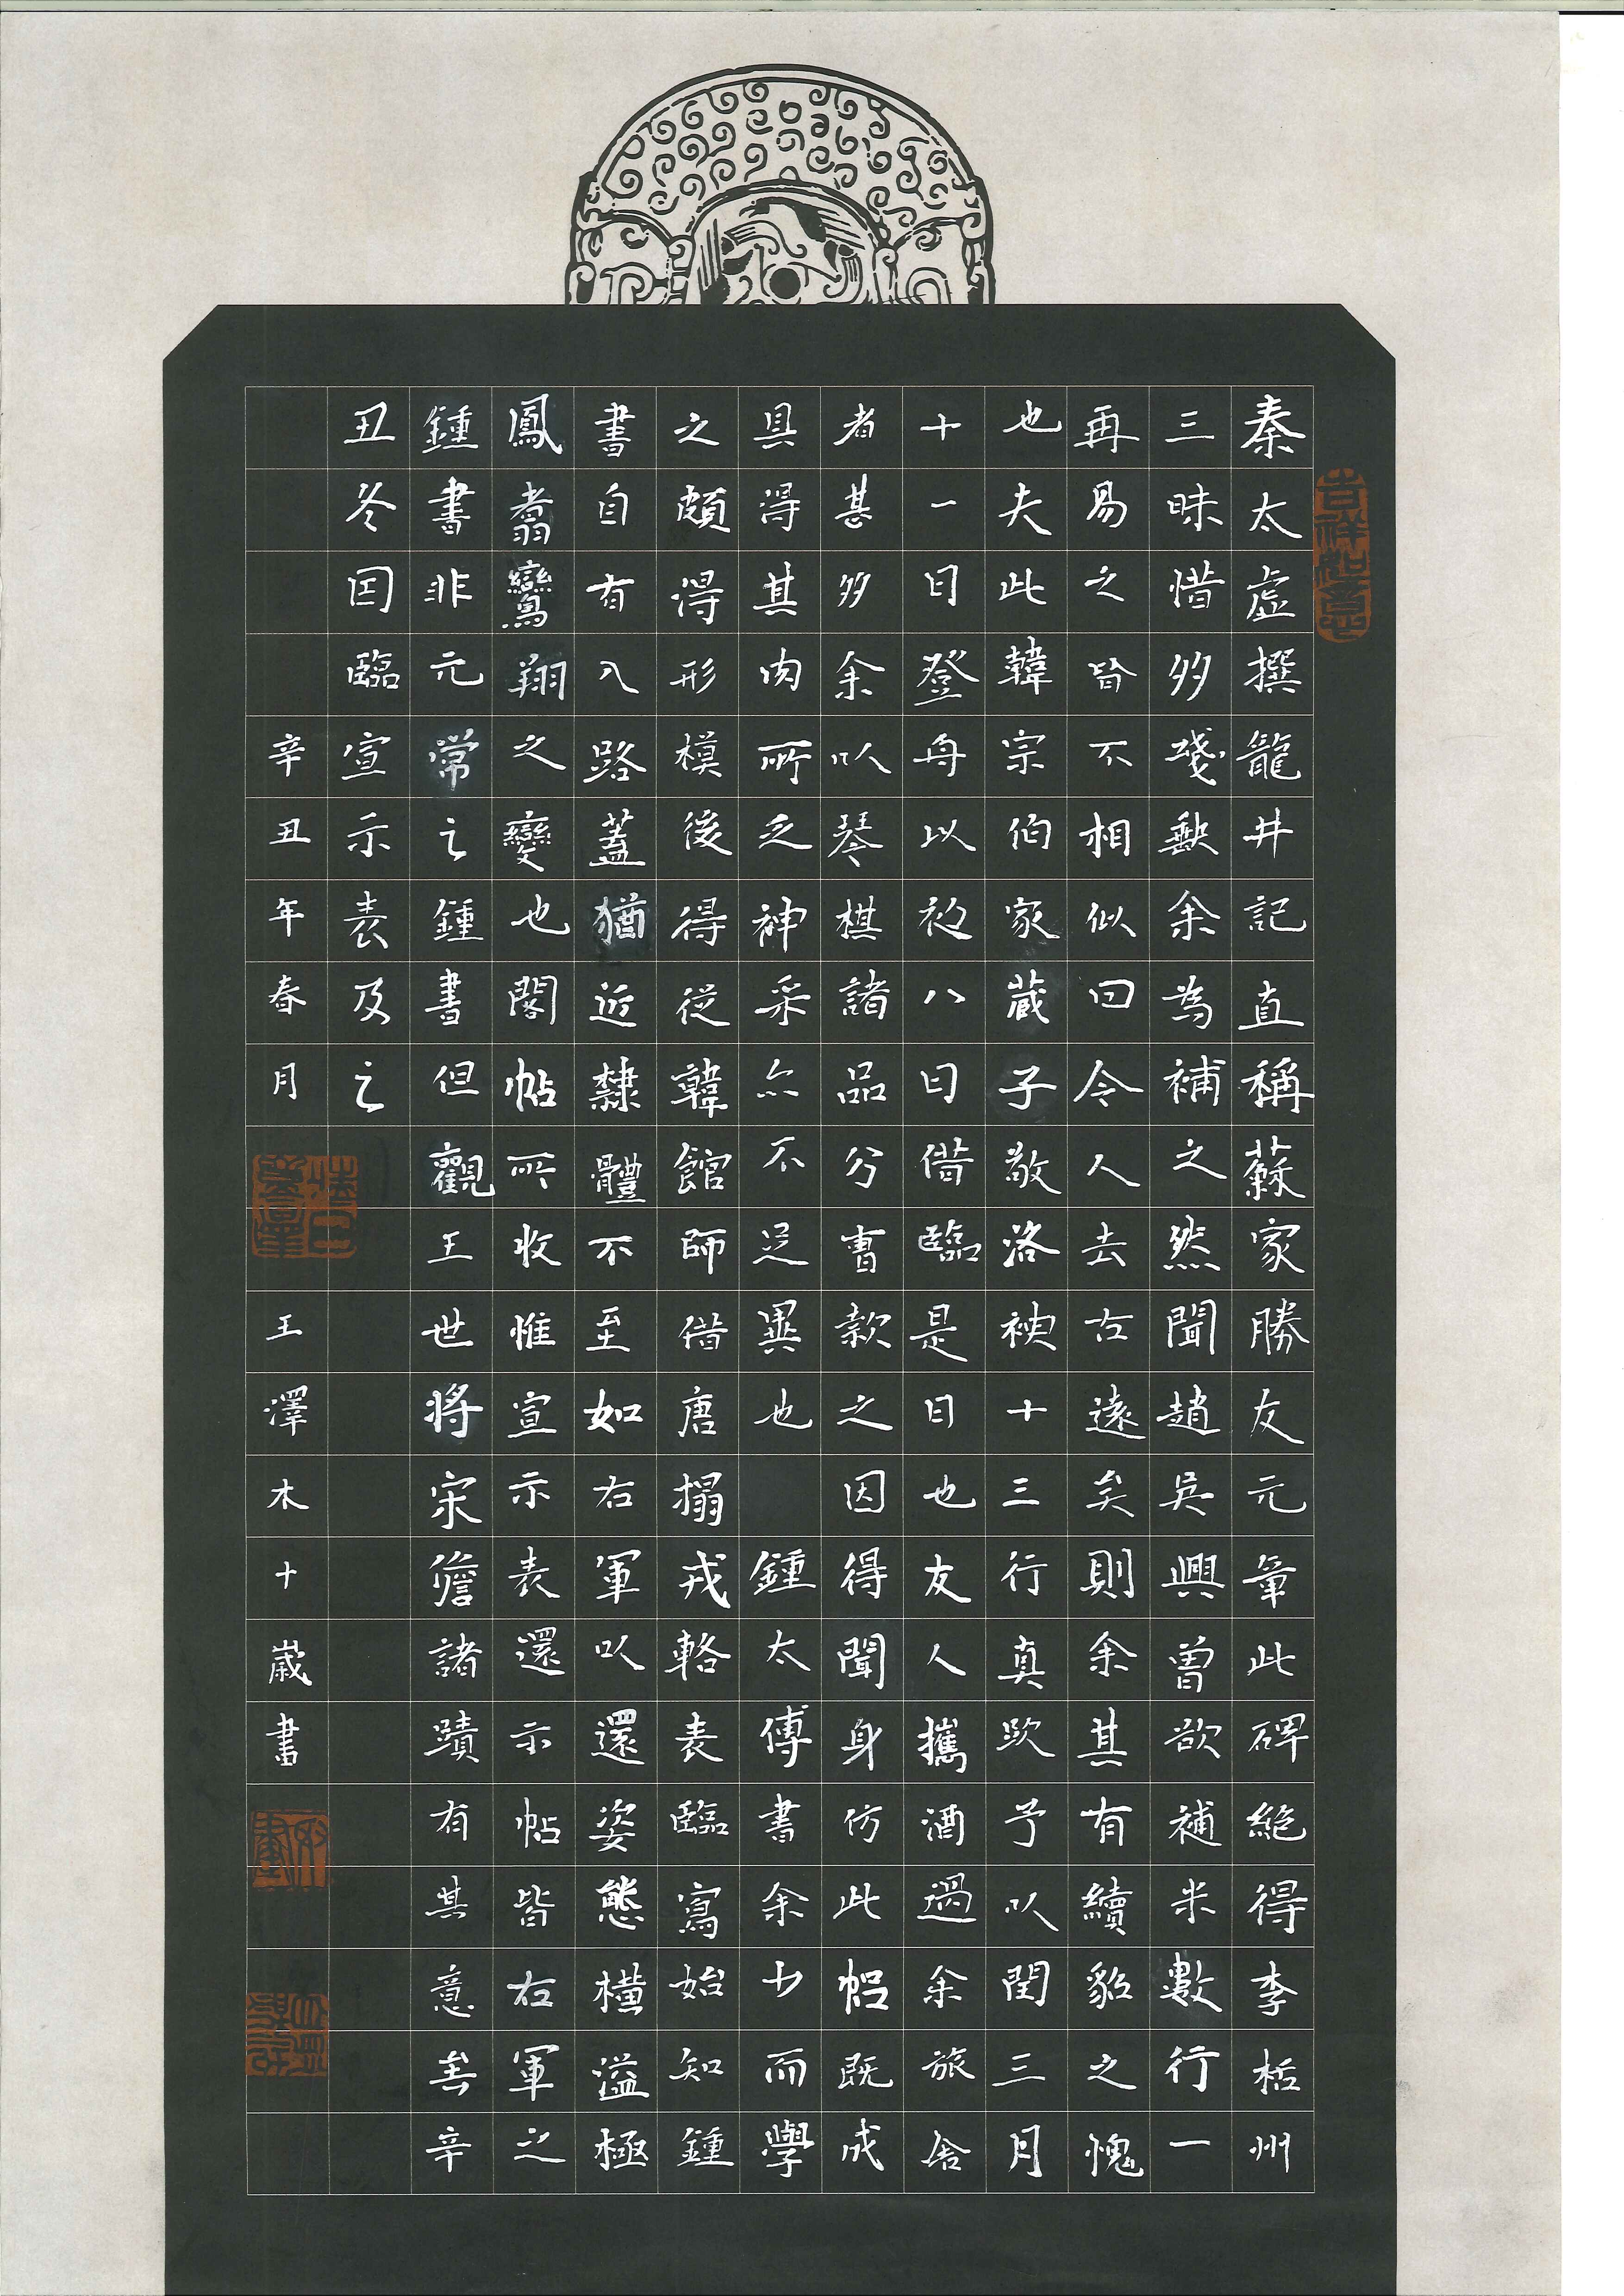 秦太虛撰龍井記直稱蘇家勝友元章此碑絕得李栝州
三昧惜多殘缺余為補之然聞趙吳興曾欲補米數行一
再易之皆不相似曰今人去古遠矣則余其有續貂之愧
也夫此韓宗伯家藏子敬洛神十三行真跡予以閏三月
十一日登舟以初八日借臨是日也友人攜酒過余旅舍
者甚多余以琴棋諸品分曹款之因得聞身仿此帖既成
具得其肉所乏神采亦不足異也 鍾太傅書余少而學
之頗得形模後得從韓館師借唐搨戎輅表臨寫始知鍾
書自有入路蓋猶近隸體不至如右軍以還姿態橫溢極
鳳翥鸞翔之變也閣帖所收惟宣示表還示帖皆右軍之
鍾書非元常之鍾書但觀王世將宋儋諸蹟有其意矣辛
丑冬因臨宣示表及之
辛丑年春月 王澤木十歲書
吉祥如意